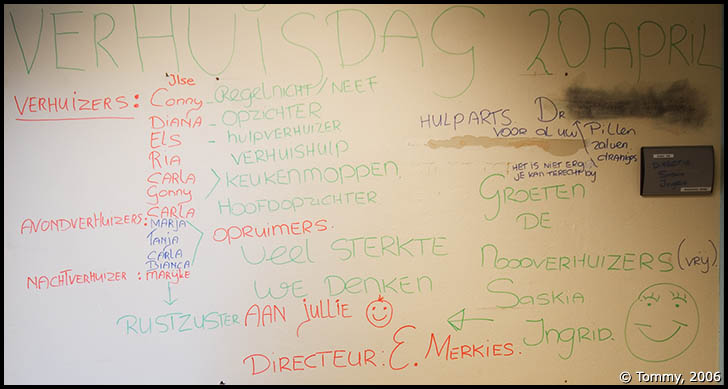 VERHUISDAG 20 APRIL
Ilse
VERHUIZERS: Conny - Regelnicht / NEEF
DIANA - OPZICHTER
ELS - hulpverhuizer
RIA VERHUISHULP
CARLA KEUKENMOPPEN
Gonny
CARLA HOOFDOPZICHTER
AVONDVERHUIZERS: MARJA OPRUIMERS.
Tanja
CARLA
BIANCA
NACHTVERHUIZER: MARYKE
RUSTZUSTER
Veel STERKTE
WE DENKEN
AAN jullie
DIRECTEUR: E. MERKIES.
HULPARTS DR
VOOR al uw Pillen
zalven
HET IS NIET ERG
JE KAN TERECHT by
GROETEN
DE
NOOOVERHUIZERS (vrij)
SASKIA
INGRID.
DIRECTIE
Saskia
Ingrid
© Tommy, 2006